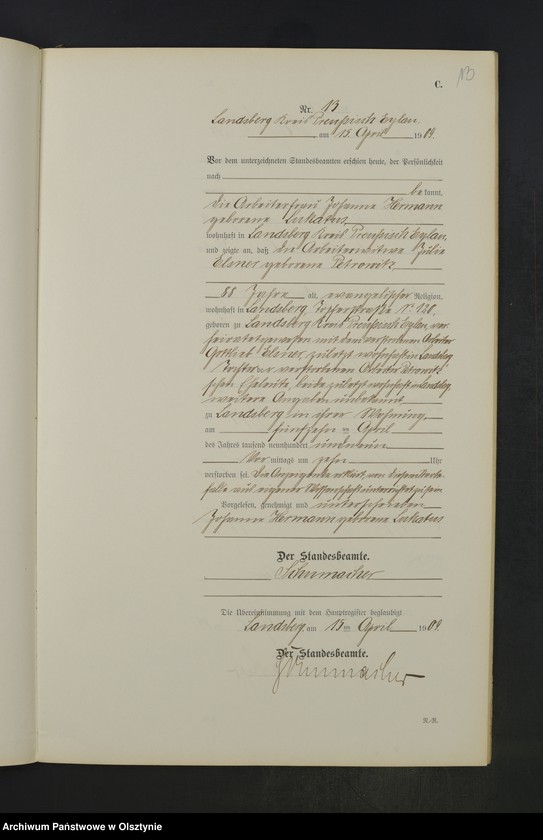 C.
Nr. 13
Landsberg Kreis Preußisch Eylau
am 15. April 1909.
Vor dem unterzeichneten Standesbeamten erschien heute, der Persönlichkeit
nach
bekannt,
die Arbeiterfrau Johanne Hermann
geborene Lukatus
wohnhaft in Landsberg Kreis Preußisch Eylau
und zeigte an, daß die Arbeiterwitwe Julie
Elsner geborene Petrowitz
88 Jahre alt, evangelischer Religion,
wohnhaft in Landsberg, No 128,
geboren zu Landsberg Kreis Preußisch Eylau, ver-
heiratet gewesen mit dem verstorbenen Arbeiter
Gottlieb Elsner zuletzt wohnhaft in Landsberg
Tochter der verstorbenen Arbeiter Petrowitz-
schen Eheleute, beide zuletzt wohnhaft in Landsberg,
weitere Angaben unbekannt
zu Landsberg in ihrer Wohnung,
am fünfzehnten April
des Jahres tausend neunhundert und neun
Vormittags um zehn Uhr
verstorben sei. Die Anzeigende erklärt, von diesem Sterbe-
falle aus eigener Wissenschaft unterrichtet zu sein
Vorgelesen, genehmigt und unterschrieben
Johanne Hermann geborene Lukatus
Der Standesbeamte.
Schumacher
Die Übereinstimmung mit dem Hauptregister beglaubigt
Landsberg, am 15ten April 1909.
Der Standesbeamte.
Schumacher
R.-R.
Archiwum Państwowe w Olsztynie